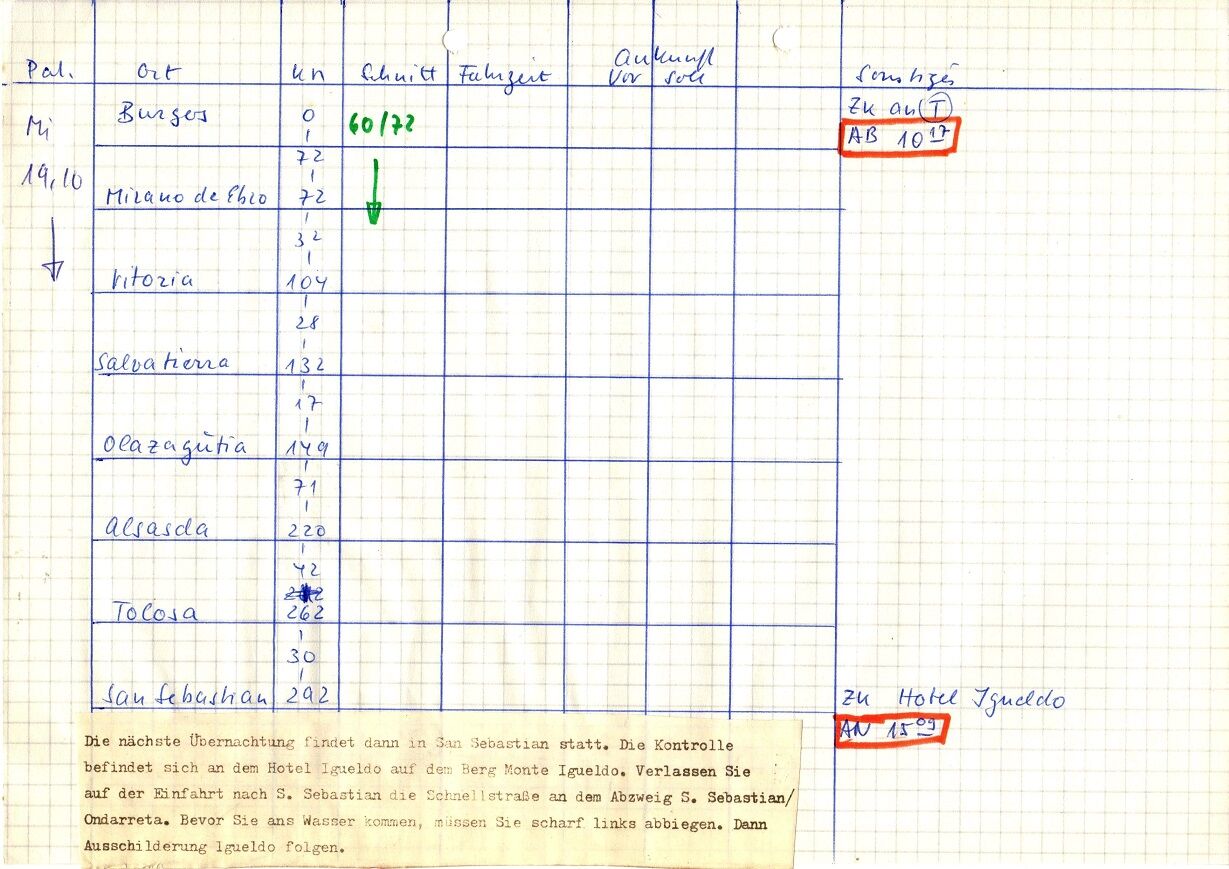 Dat. Ort km Schnitt Fahrzeit Ankunft Vor Soll Sonstiges
Mi 19.10 Burgos 0 60/72 ZK an (T)
AB 10 17
72
Mirano de Ebro 72
32
Vitoria 104
28
Salvatierra 132
17
Olazagútia 149
71
Alsasda 220
42
Tolosa 262
30
San Sebastian 292 ZK Hotel Igueldo
AN 15 09
Die nächste Übernachtung findet dann in San Sebastian statt. Die Kontrolle
befindet sich an dem Hotel Igueldo auf dem Berg Monte Igueldo. Verlassen Sie
auf der Einfahrt nach S. Sebastian die Schnellstraße an dem Abzweig S. Sebastian/
Ondarreta. Bevor Sie ans Wasser kommen, müssen Sie scharf links abbiegen. Dann
Ausschilderung Igueldo folgen.